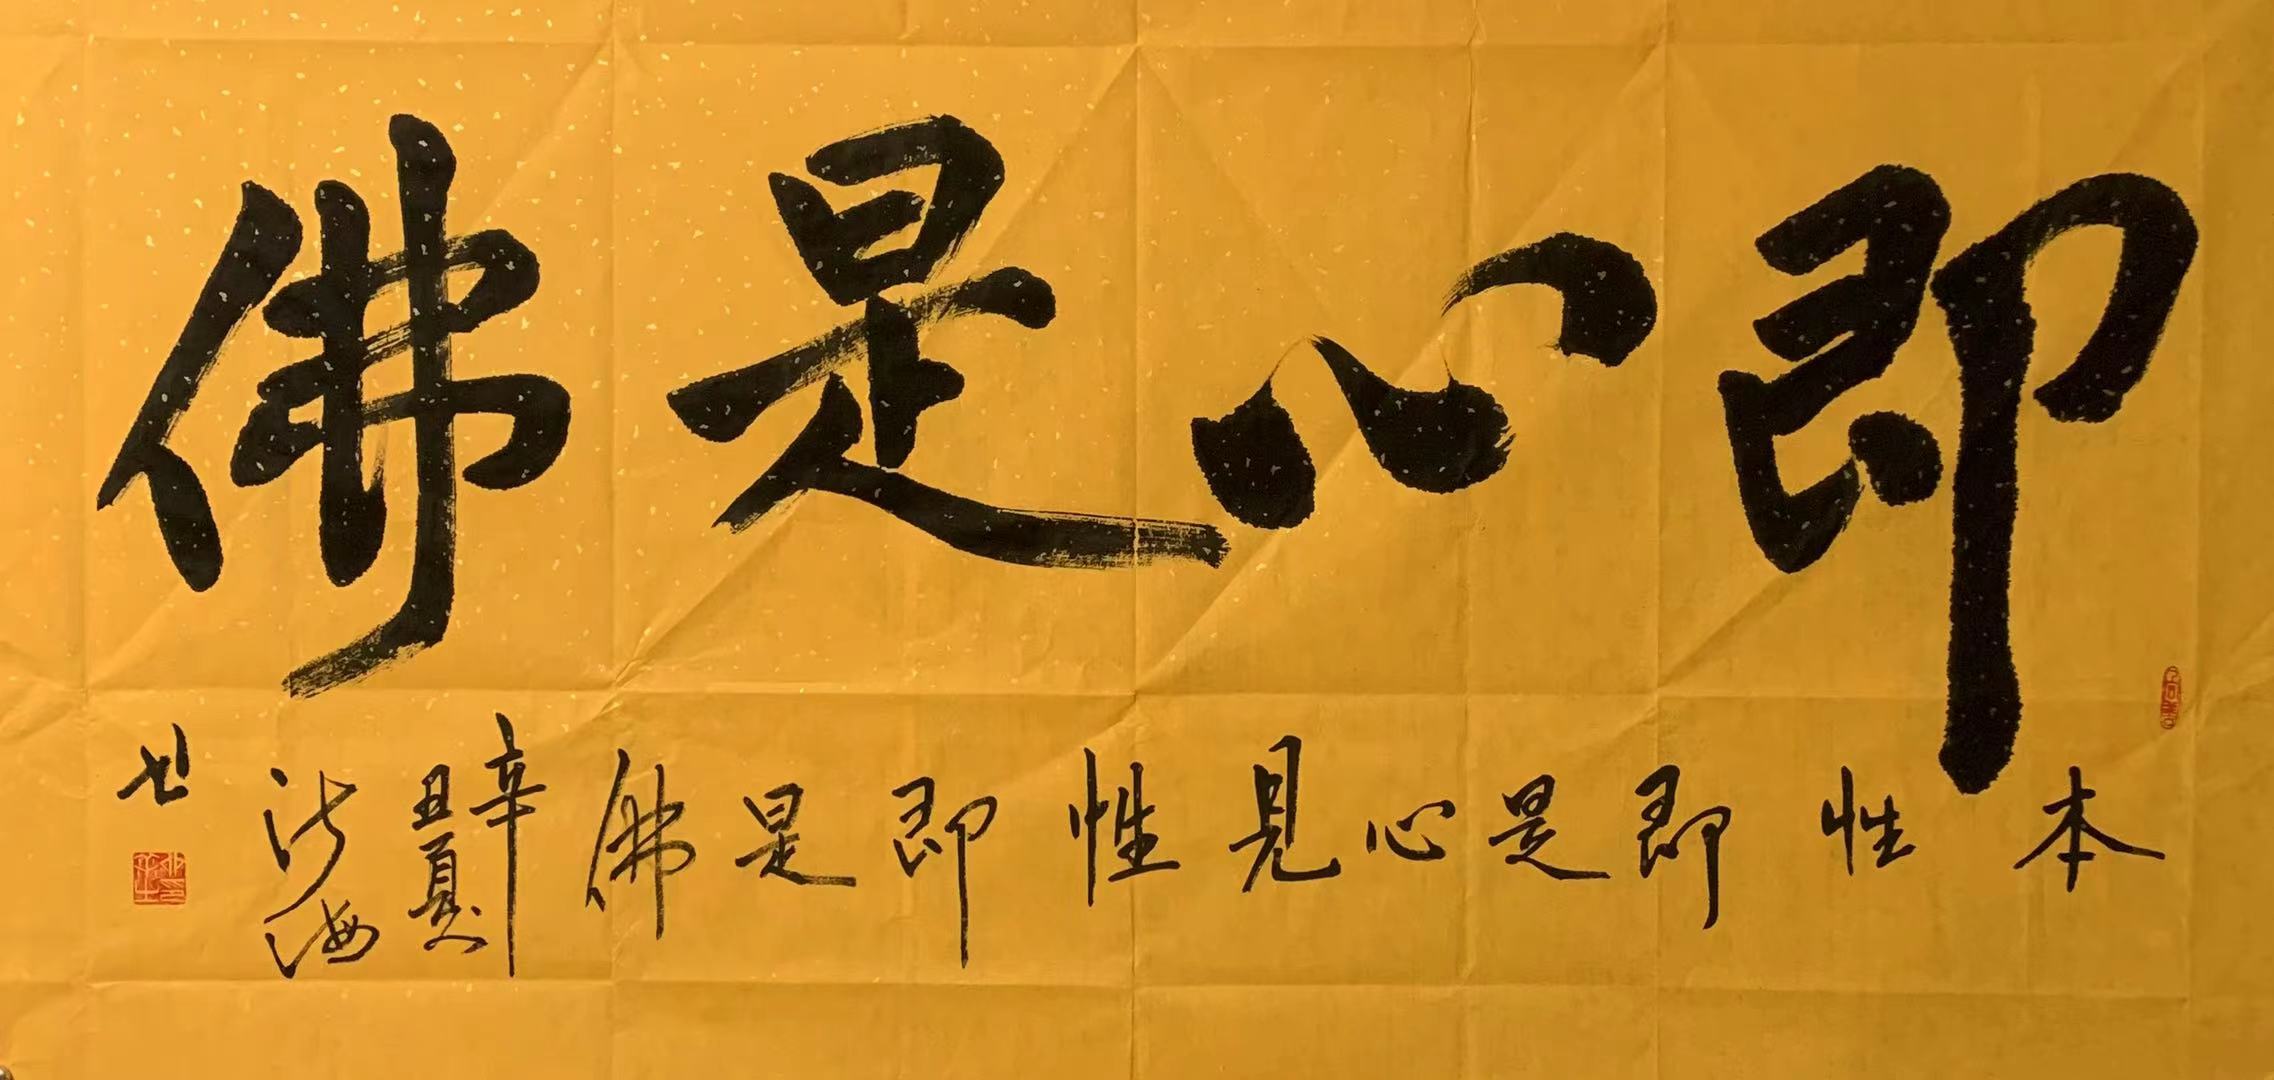 即心是佛
本性即是心見性即是佛
辛丑夏
海